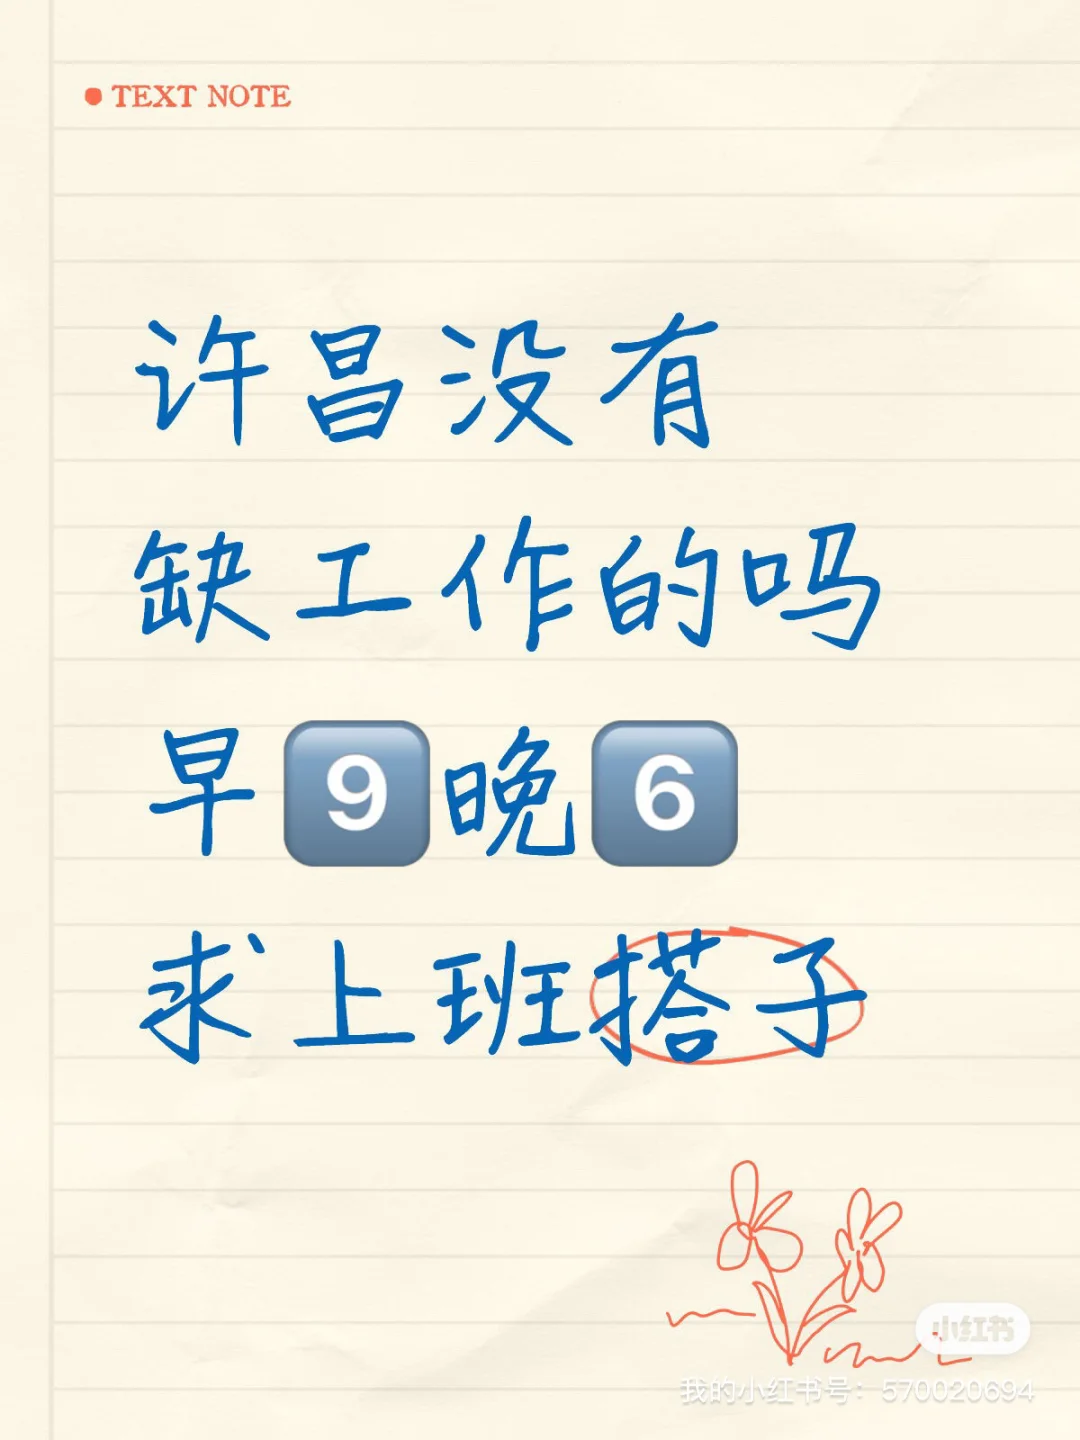 TEXT NOTE
许昌没有
缺工作的吗
早9️⃣晚6️⃣
求上班搭子
小红书
我的小红书号：570020694